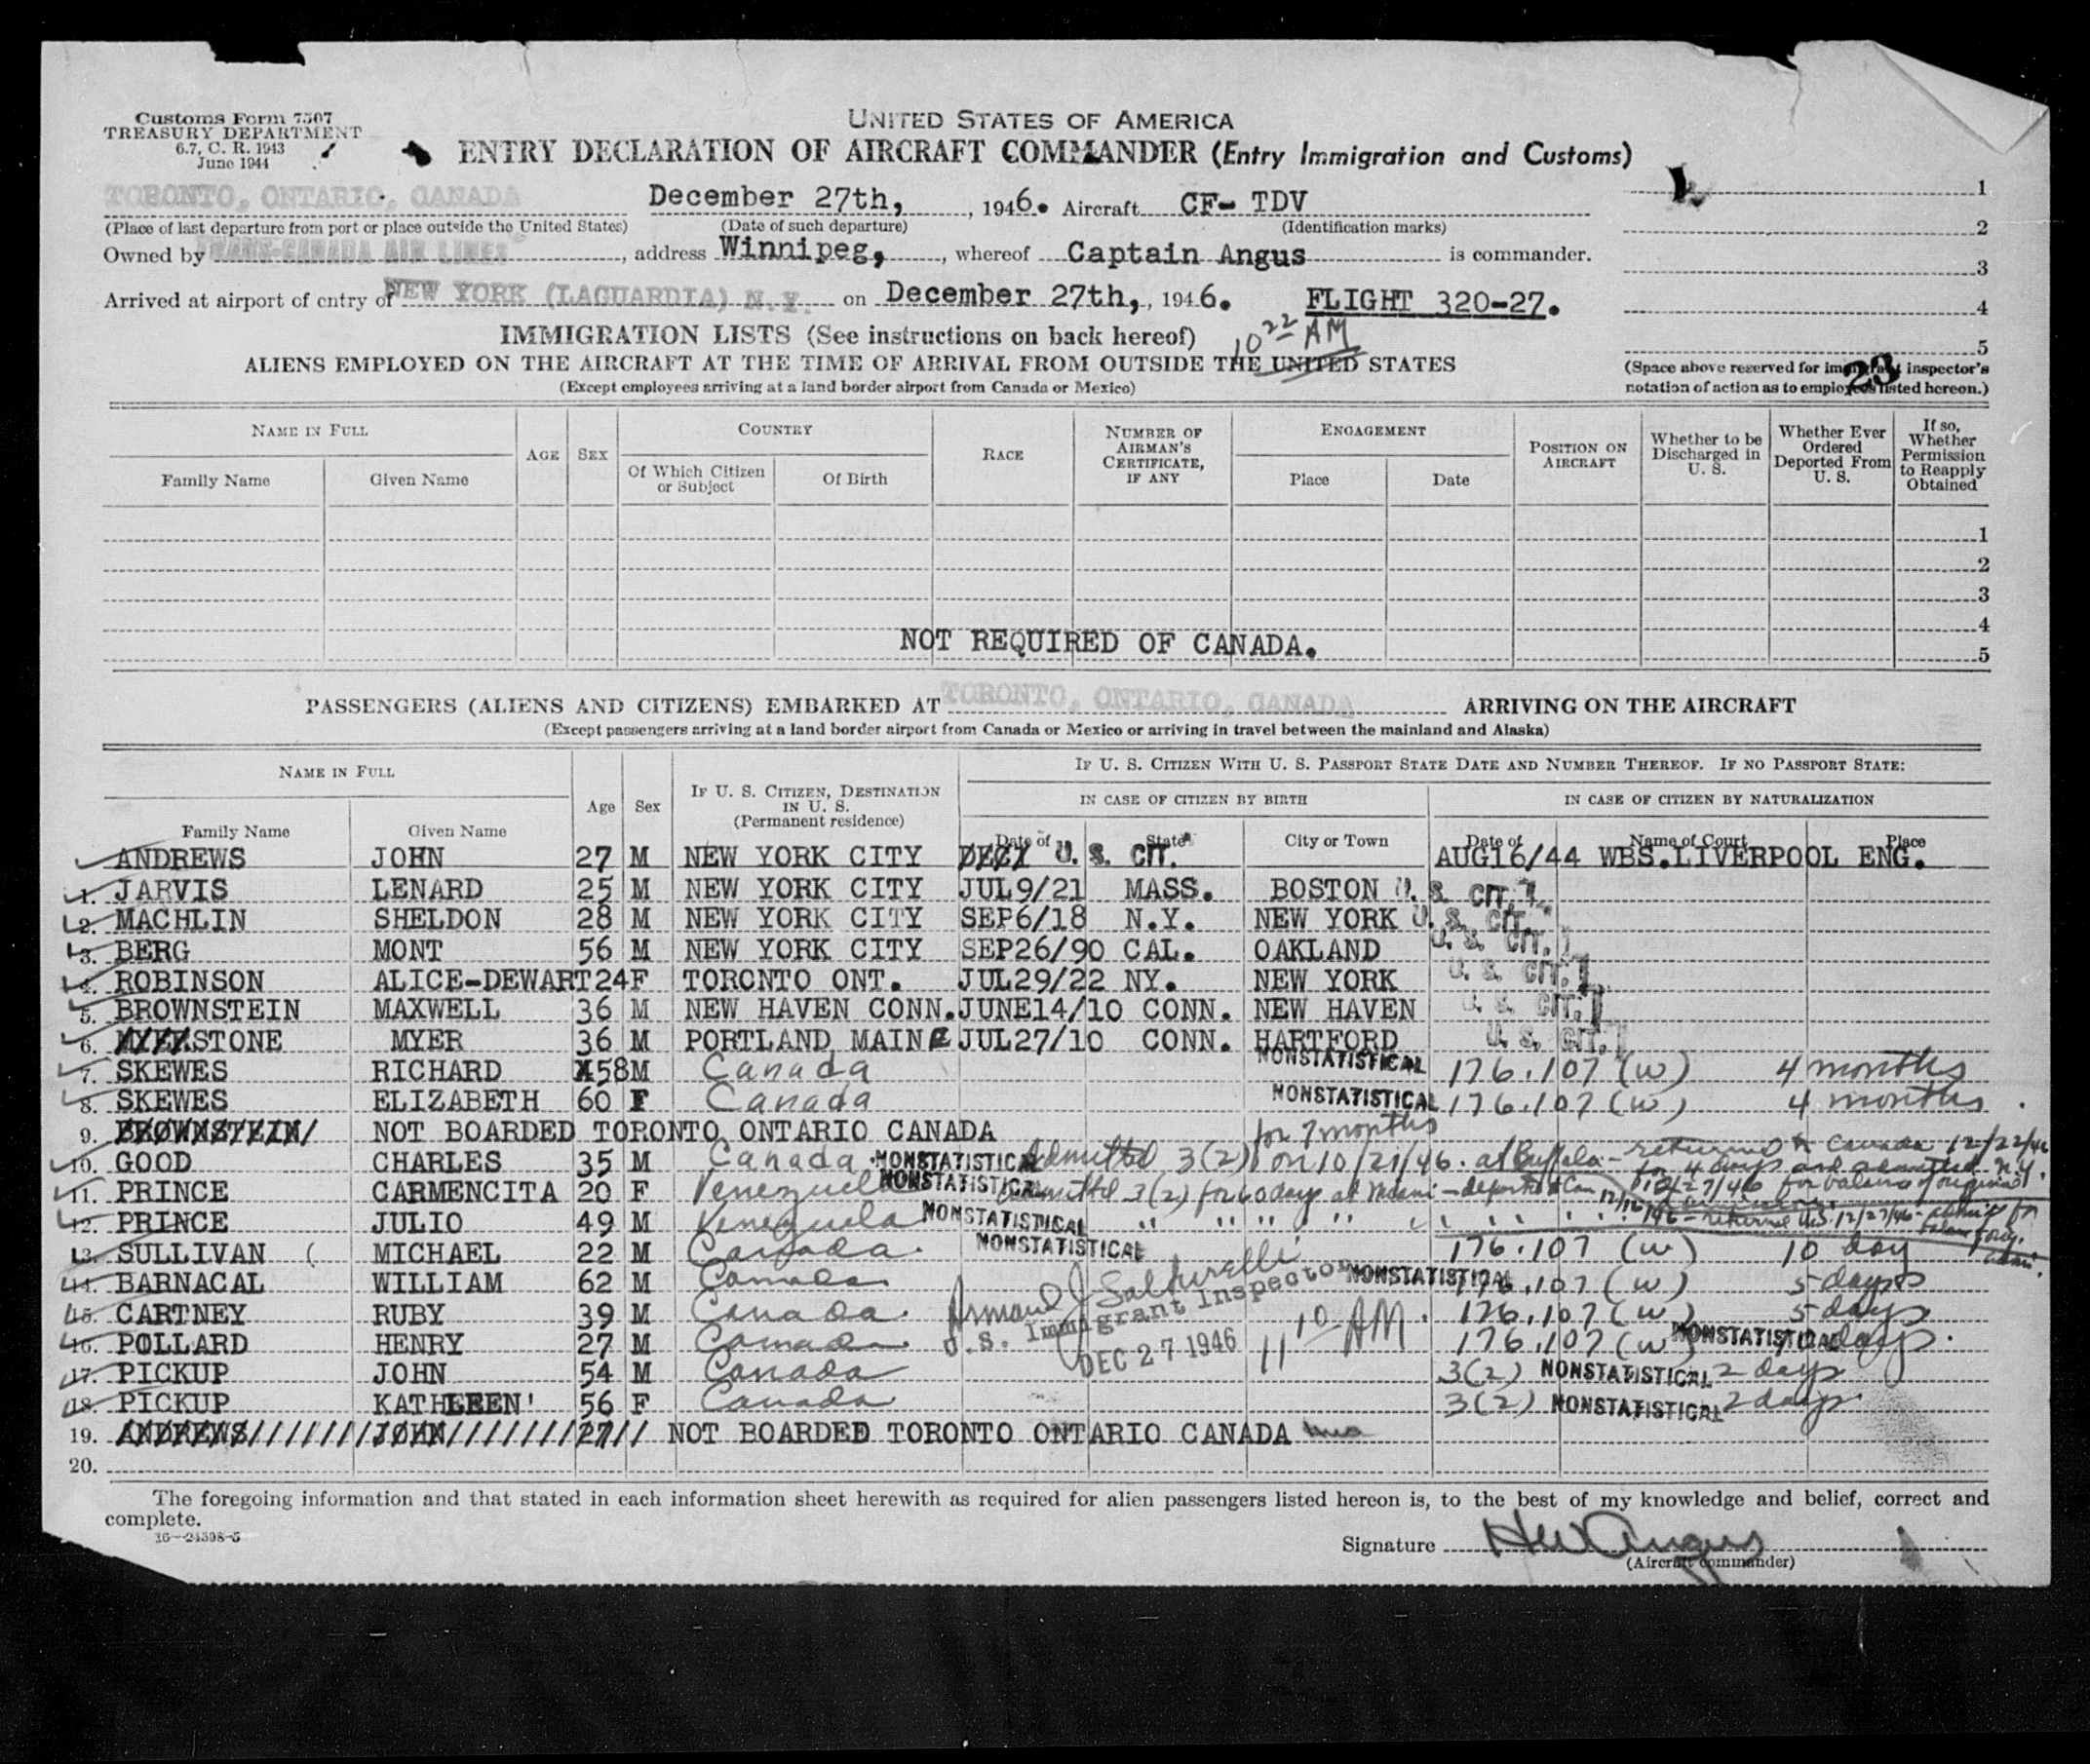 Customs Form 7507
TREASURY DEPARTMENT
6.7, C. R. 1943
June 1944
UNITED STATES OF AMERICA
ENTRY DECLARATION OF AIRCRAFT COMMANDER (Entry Immigration and Customs)
TORONTO, ONTARIO, CANADA December 27th, , 1946. Aircraft CF- TDV
(Place of last departure from port or place outside the United States) (Date of such departure) (Identification marks)
Owned by TRANS-CANADA AIR LINES , address Winnipeg, , whereof Captain Angus is commander.
Arrived at airport of entry of NEW YORK (LAGUARDIA) N. Y. on December 27th, , 1946. FLIGHT 320-27.
1
2
3
4
5
IMMIGRATION LISTS (See instructions on back hereof)
10 22 AM
ALIENS EMPLOYED ON THE AIRCRAFT AT THE TIME OF ARRIVAL FROM OUTSIDE THE UNITED STATES
(Except employees arriving at a land border airport from Canada or Mexico)
(Space above reserved for immigrant inspector's
notation of action as to employees listed hereon.)
23
NAME IN FULL
Family Name Given Name
AGE SEX
COUNTRY
Of Which Citizen or Subject Of Birth
RACE
NUMBER OF AIRMAN'S CERTIFICATE, IF ANY
ENGAGEMENT
Place Date
POSITION ON AIRCRAFT
Whether to be Discharged in U. S.
Whether Ever Ordered Deported From U. S.
If so, Whether Permission to Reapply Obtained
1
2
3
4
NOT REQUIRED OF CANADA.
5
PASSENGERS (ALIENS AND CITIZENS) EMBARKED AT TORONTO, ONTARIO, CANADA ARRIVING ON THE AIRCRAFT
(Except passengers arriving at a land border airport from Canada or Mexico or arriving in travel between the mainland and Alaska)
NAME IN FULL
Family Name Given Name
Age Sex
IF U. S. CITIZEN, DESTINATION IN U. S. (Permanent residence)
IF U. S. CITIZEN WITH U. S. PASSPORT STATE DATE AND NUMBER THEREOF. IF NO PASSPORT STATE:
IN CASE OF CITIZEN BY BIRTH IN CASE OF CITIZEN BY NATURALIZATION
Date of State City or Town Date of Name of Court Place
ANDREWS JOHN 27 M NEW YORK CITY U. S. CIT. AUG16/44 WBS.LIVERPOOL ENG.
1. JARVIS LENARD 25 M NEW YORK CITY JUL9/21 MASS. BOSTON U. S. CIT.
2. MACHLIN SHELDON 28 M NEW YORK CITY SEP6/18 N.Y. NEW YORK U. S. CIT.
3. BERG MONT 56 M NEW YORK CITY SEP26/90 CAL. OAKLAND U. S. CIT.
4. ROBINSON ALICE-DEWART 24 F TORONTO ONT. JUL29/22 NY. NEW YORK U. S. CIT.
5. BROWNSTEIN MAXWELL 36 M NEW HAVEN CONN. JUNE14/10 CONN. NEW HAVEN U. S. CIT.
6. STONE MYER 36 M PORTLAND MAINE JUL27/10 CONN. HARTFORD U. S. CIT.
7. SKEWES RICHARD 58 M Canada NONSTATISTICAL 176.107 (w) 4 months
8. SKEWES ELIZABETH 60 F Canada NONSTATISTICAL 176.107 (w) 4 months
9. BROWNSTEIN NOT BOARDED TORONTO ONTARIO CANADA
for 7 months
10. GOOD CHARLES 35 M Canada NONSTATISTICAL Admitted 3(2) on 10/21/46. at Buffalo - returned to Canada 12/22/46
for 4 days and admitted N.Y.
11. PRINCE CARMENCITA 20 F Venezuela NONSTATISTICAL admitted 3(2) for 60 days at Miami - 12/27/46 for balance of original
12. PRINCE JULIO 49 M Venezuela NONSTATISTICAL " " " " returned U.S. 12/27/46
13. SULLIVAN ( MICHAEL 22 M Canada. NONSTATISTICAL 176.107 (w) 10 day
14. BARNACAL WILLIAM 62 M Canada NONSTATISTICAL 176.107 (w) 5 days
15. CARTNEY RUBY 39 M Canada. 176.107 (w) 5 days
16. POLLARD HENRY 27 M Canada 176.107 (w) NONSTATISTICAL days.
17. PICKUP JOHN 54 M Canada 3(2) NONSTATISTICAL 2 days
18. PICKUP KATHLEEN' 56 F Canada 3(2) NONSTATISTICAL 2 days.
U. S. Immigrant Inspector
DEC 27 1946
11 10 AM.
19. ANDREWS////////JOHN////////27// NOT BOARDED TORONTO ONTARIO CANADA
20.
The foregoing information and that stated in each information sheet herewith as required for alien passengers listed hereon is, to the best of my knowledge and belief, correct and
complete.
16—24598-5
Signature HW Angus
(Aircraft commander)